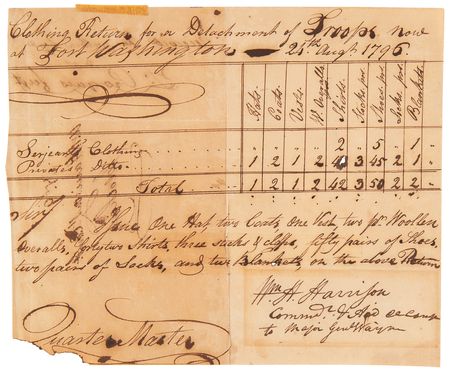 Clothing Return for a Detachment of Troops now
at Fort Washington 21st Augt 1796
Hats. Coats. Vests. W. Overalls. Shirts. Stocks Shoes prs. Socks prs. Blankets.
Serjeants Clothing 2 5 1
Privates Ditto 1 2 1 2 40 3 45 2 1
Total 1 2 1 2 42 3 50 2 2
Sir
Issue One Hat two Coats, One Vest, two pr. Woollen
Overalls, forty two Shirts, three Stocks & clasps, fifty pairs of Shoes,
two pairs of Socks, and two Blankets, on the above Return
Wm H. Harrison
Commdr & Aid de camp
to Major Genl Wayne
Quarter Master